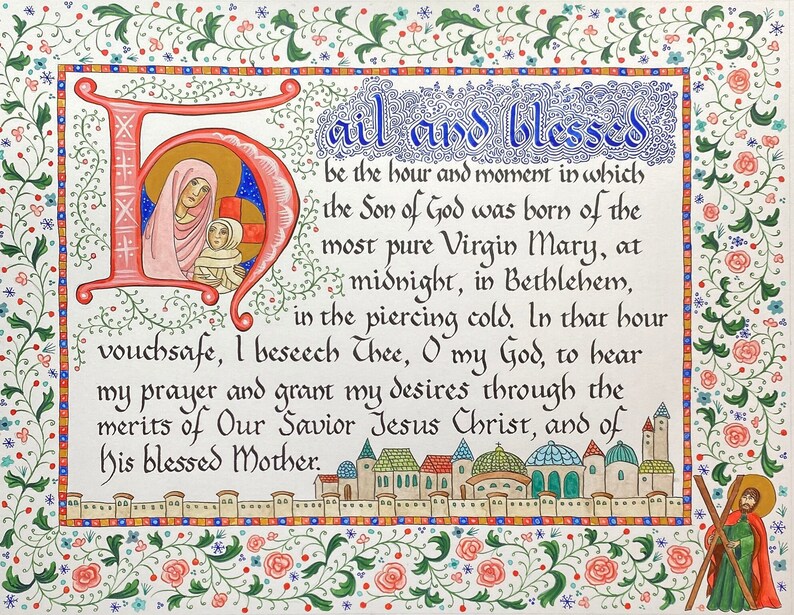 Hail and blessed
be the hour and moment in which
the Son of God was born of the
most pure Virgin Mary, at
midnight, in Bethlehem,
in the piercing cold. In that hour
vouchsafe, I beseech Thee, O my God, to hear
my prayer and grant my desires through the
merits of Our Savior Jesus Christ, and of
His blessed Mother.